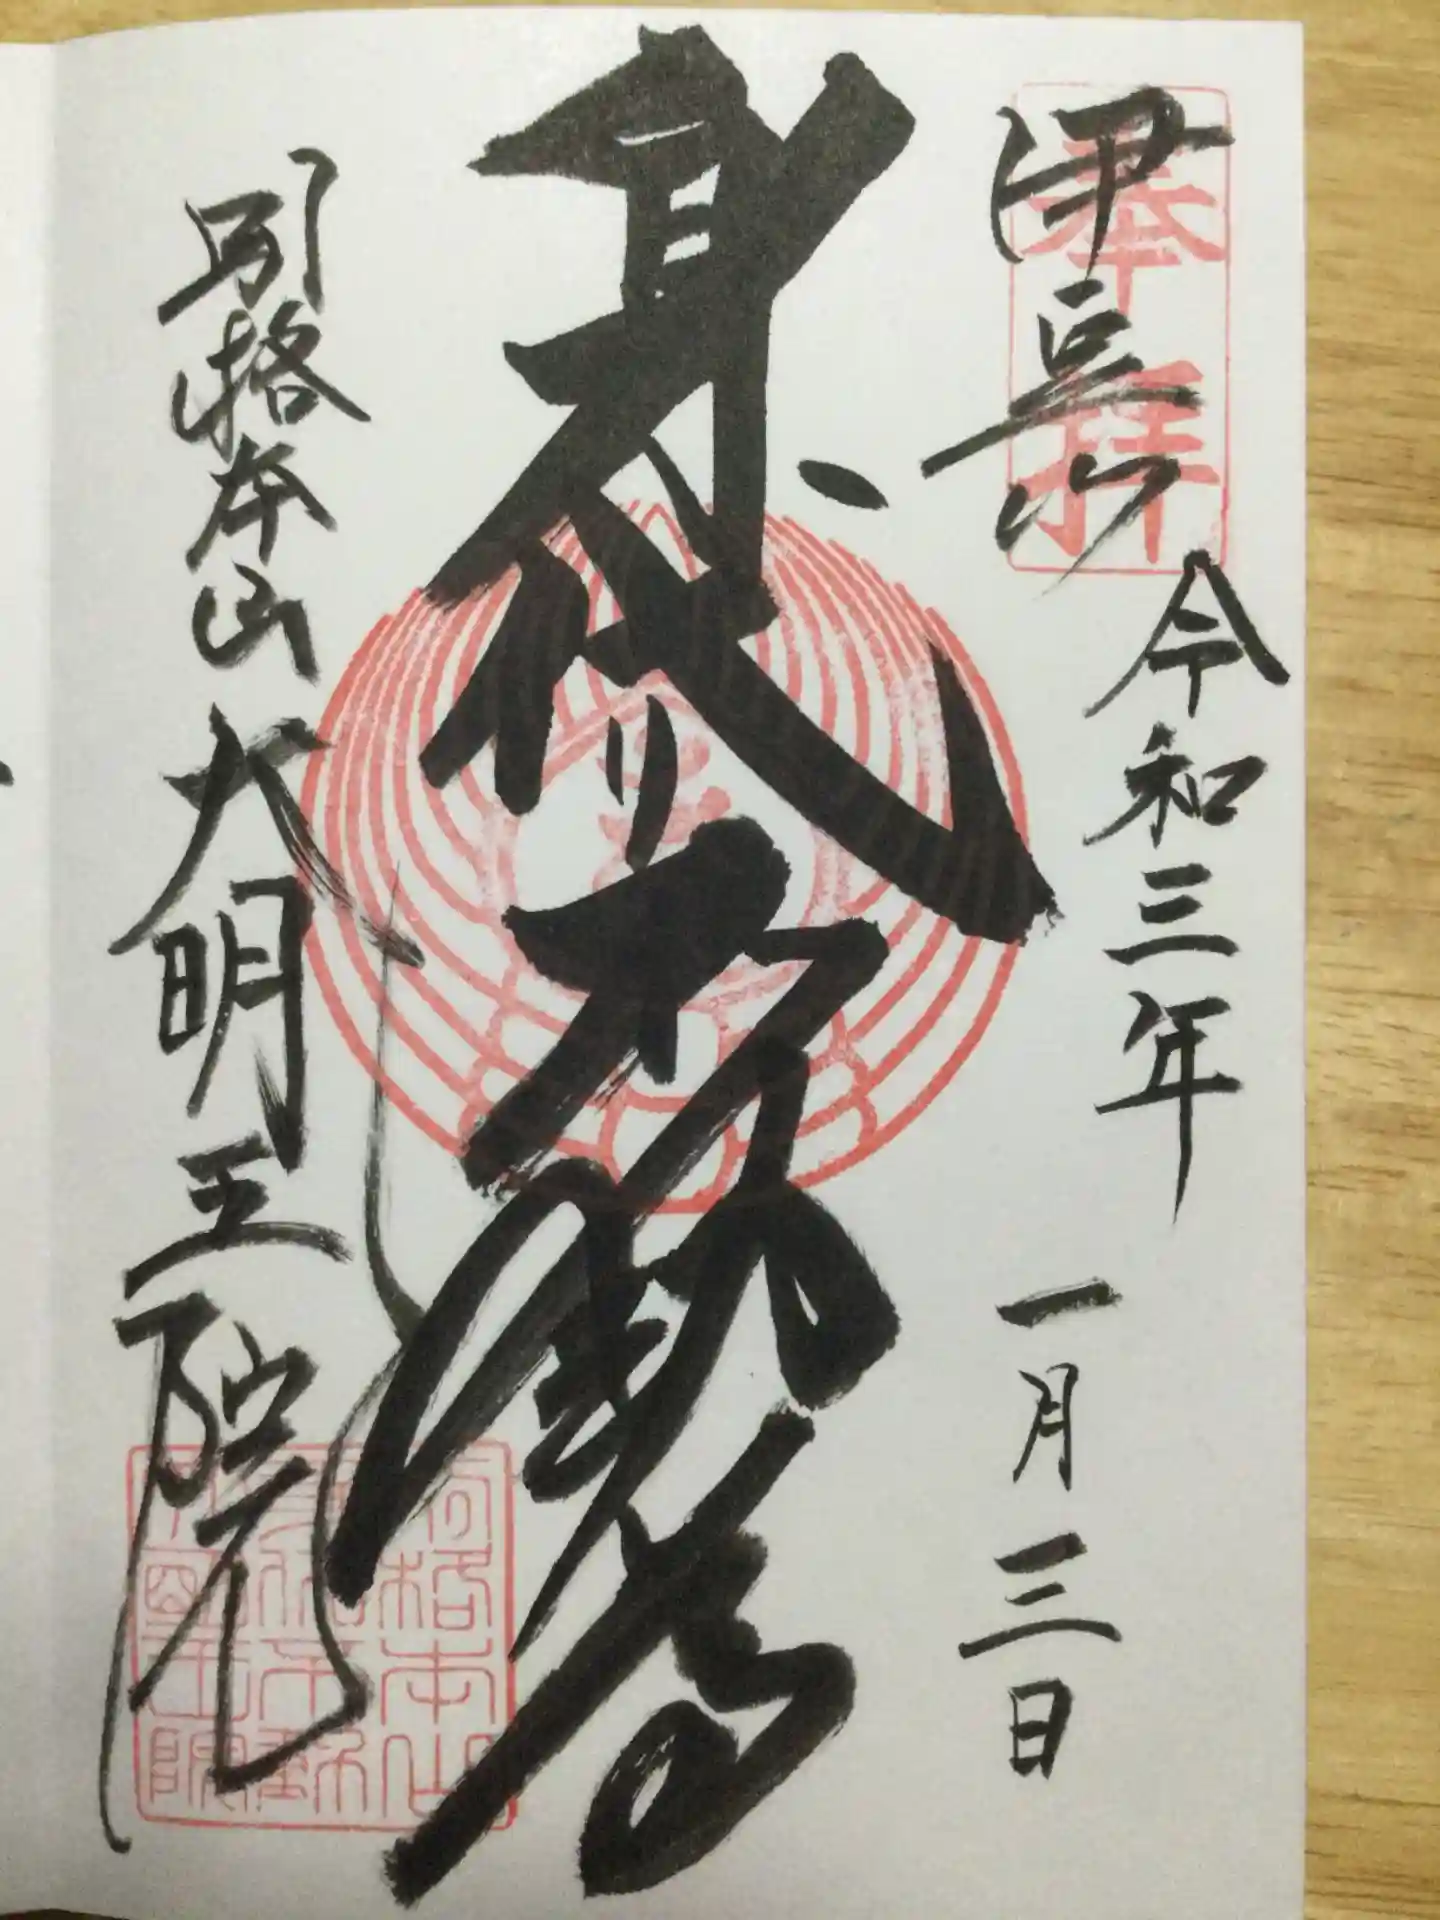 奉拝
伊豆山
令和三年
一月三日
身代り不動尊
別格本山大明王院